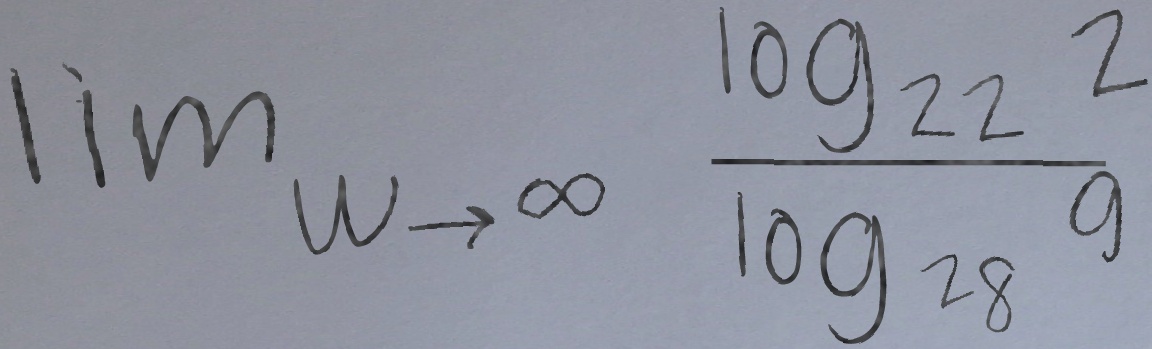 lim w→∞ log₂₂ 2 / log₂₈ 9